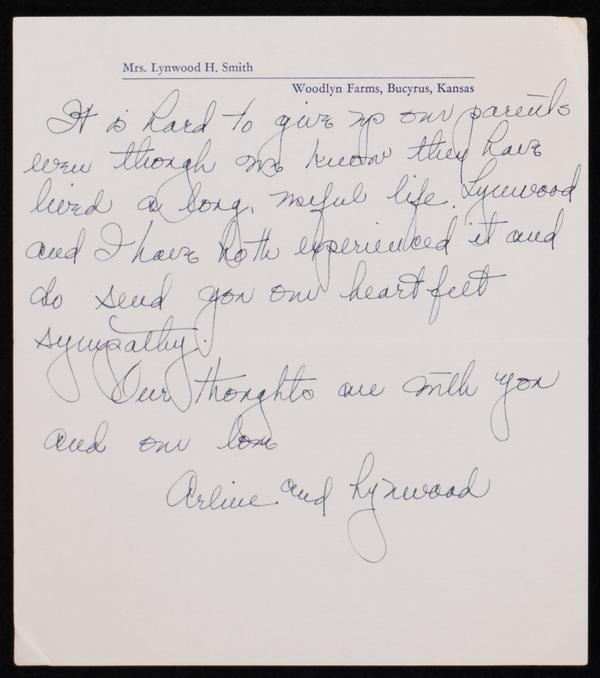 Mrs. Lynwood H. Smith
Woodlyn Farms, Bucyrus, Kansas
It is hard to give up our parents
even though we know they have
lived a long, useful life. Lynwood
and I have both experienced it and
do send you our heartfelt
sympathy.
Our thoughts are with you
and our love
Arline and Lynwood